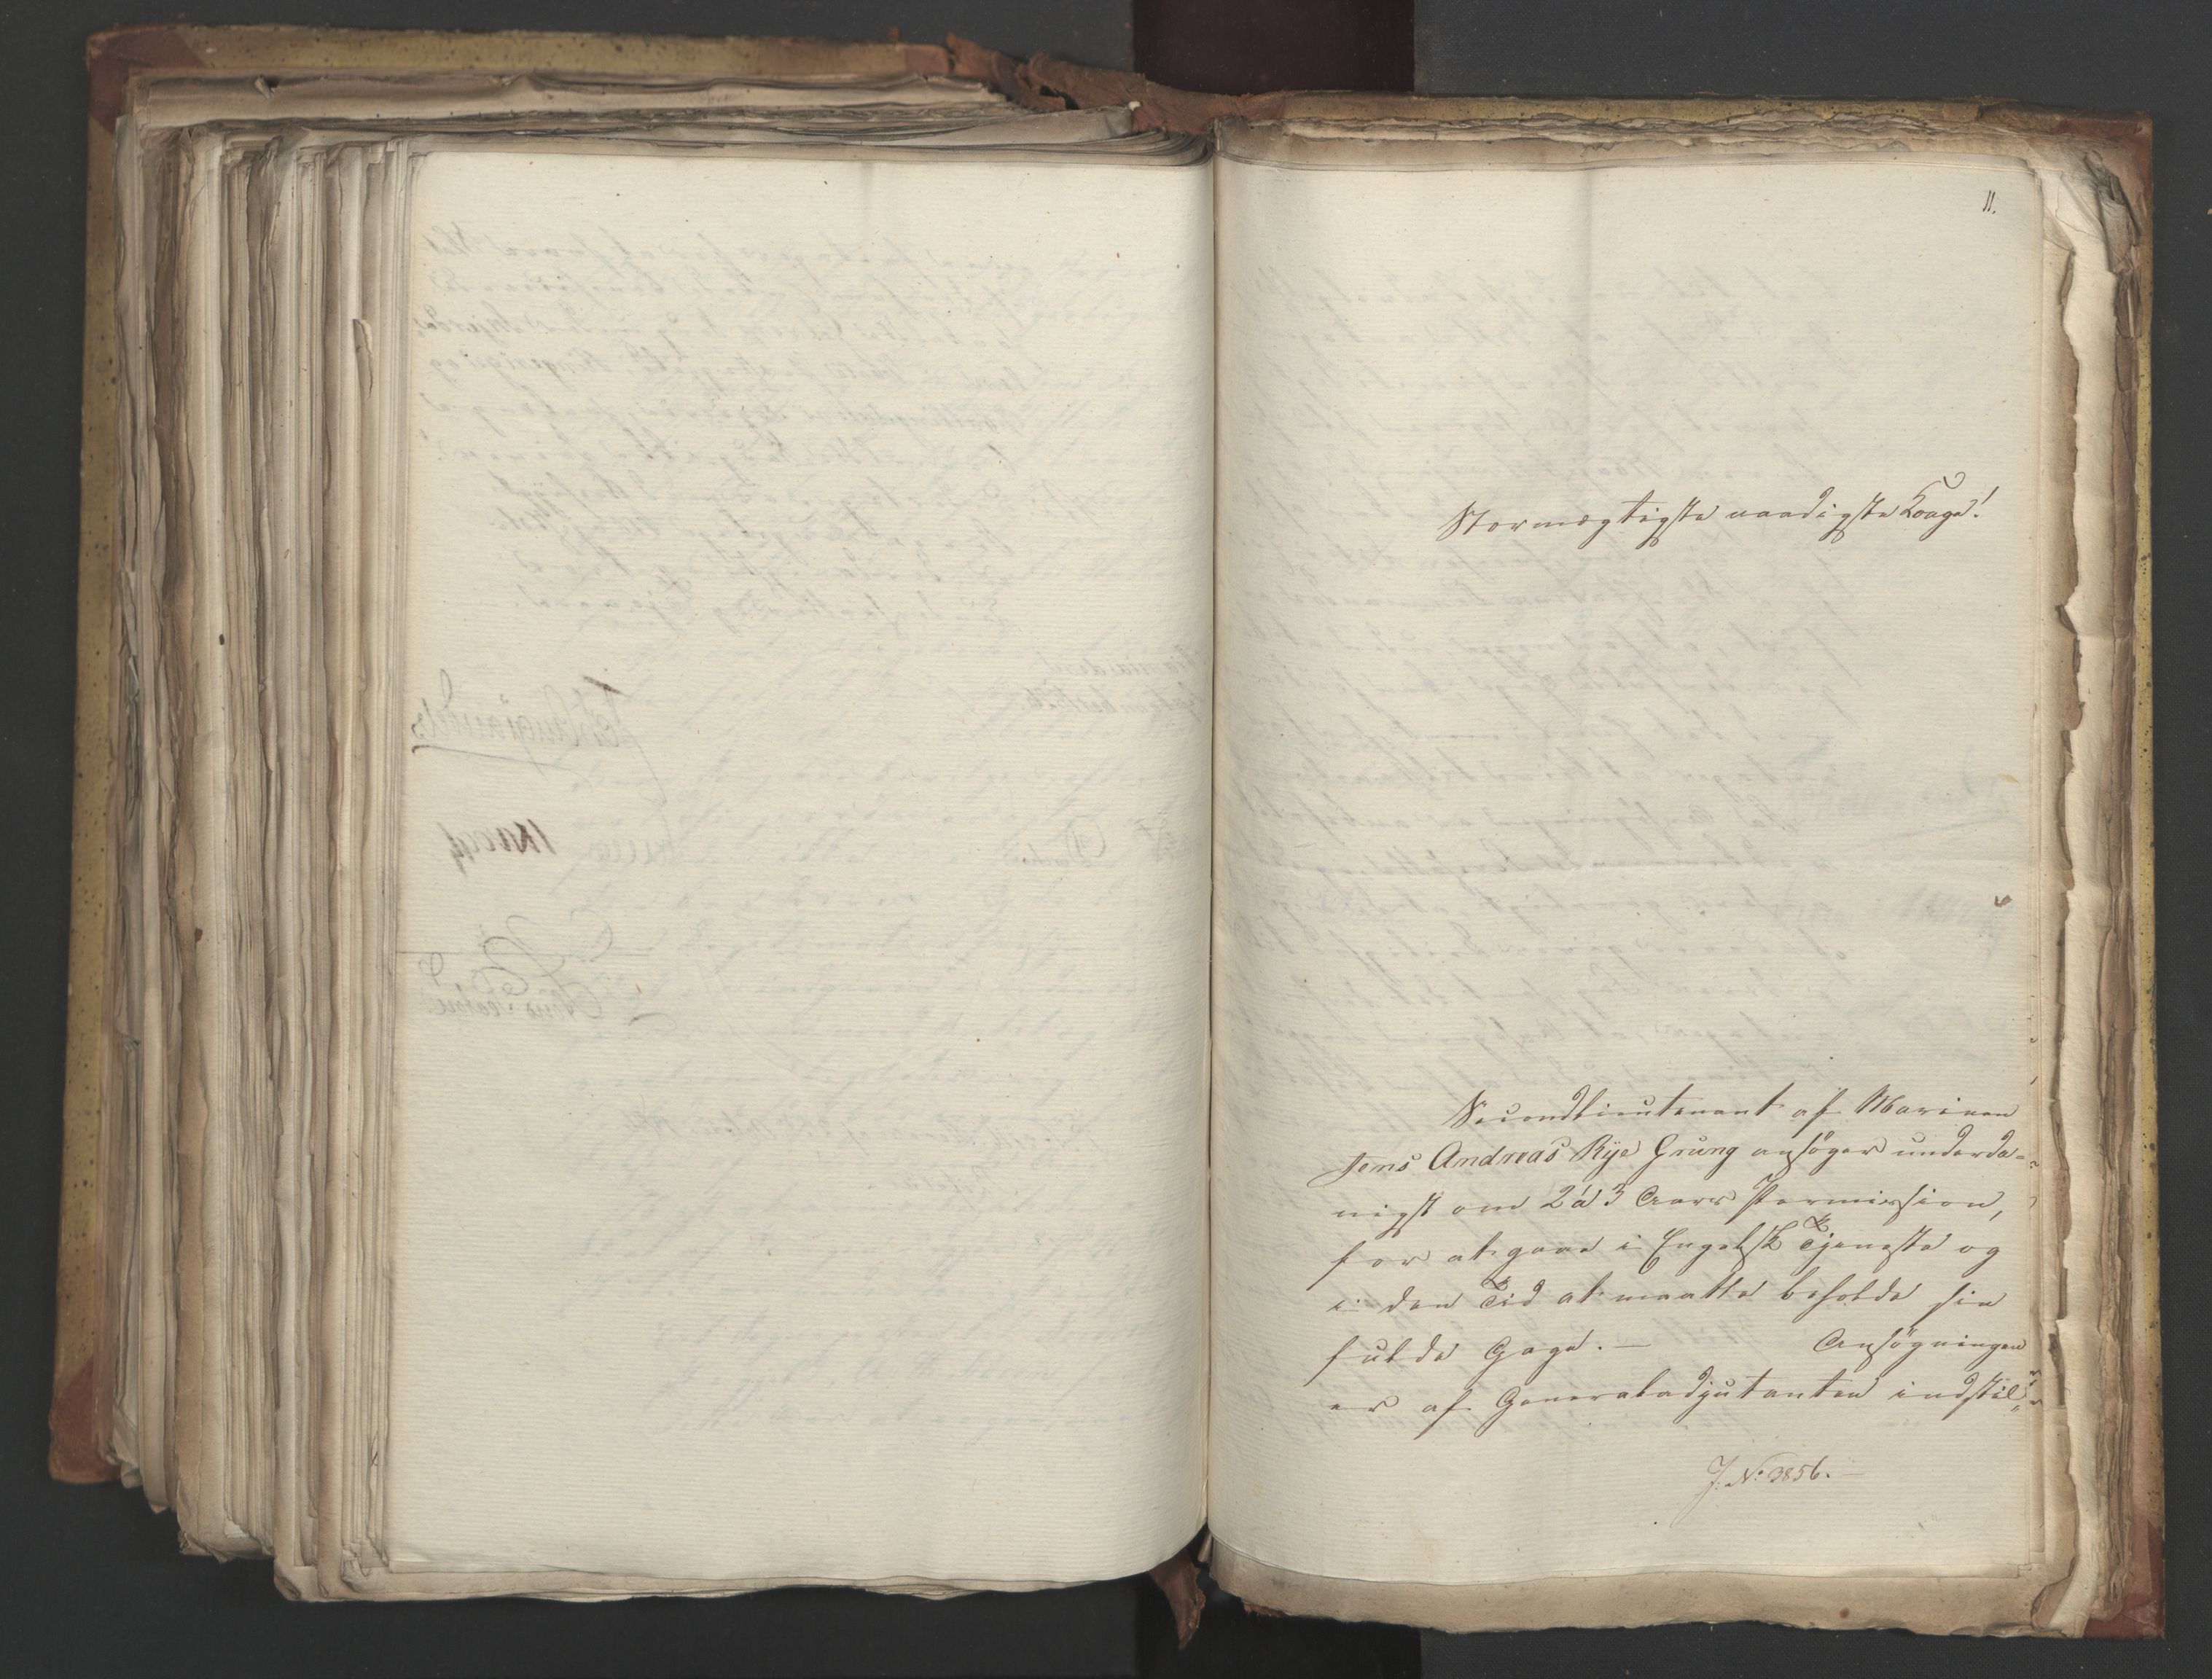 11.
Stormægtigste naadigste Konge!
Secondlieutenant af Marinen
Jens Andreas Rÿe Grung ansöger underda-
nigst om 2 à 3 Aars Permission,
for at gaae i Engelsk Tjeneste og
i den Tid at maatte beholde sin
fulde Gage. — Ansögningen
er af Generaladjutanten indstil„
J. No: 3856. —